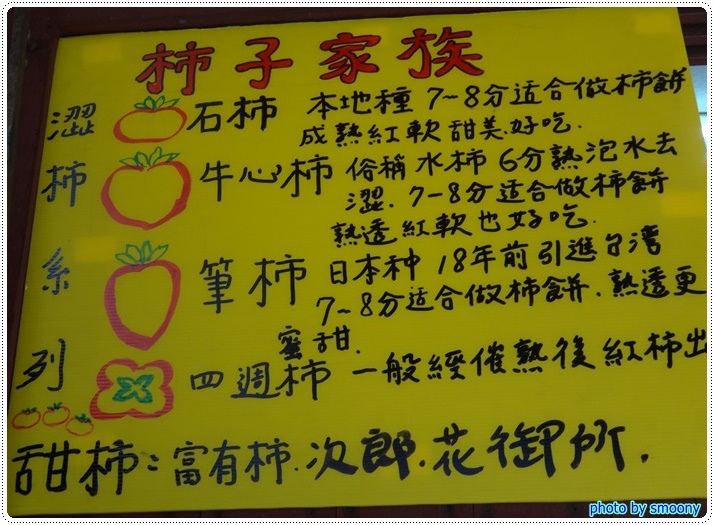 柿子家族
澀柿系列
石柿 本地種 7~8分适合做柿餅
成熟紅軟甜美.好吃.
牛心柿 俗稱水柿 6分熟泡水去
澀. 7-8分适合做柿餅
熟透紅軟也好吃.
筆柿 日本种 18年前引進台湾
7~8分适合做柿餅.熟透更
蜜甜.
四週柿 一般經催熟後紅柿出
甜柿:富有柿.次郎.花御所.
photo by smoony